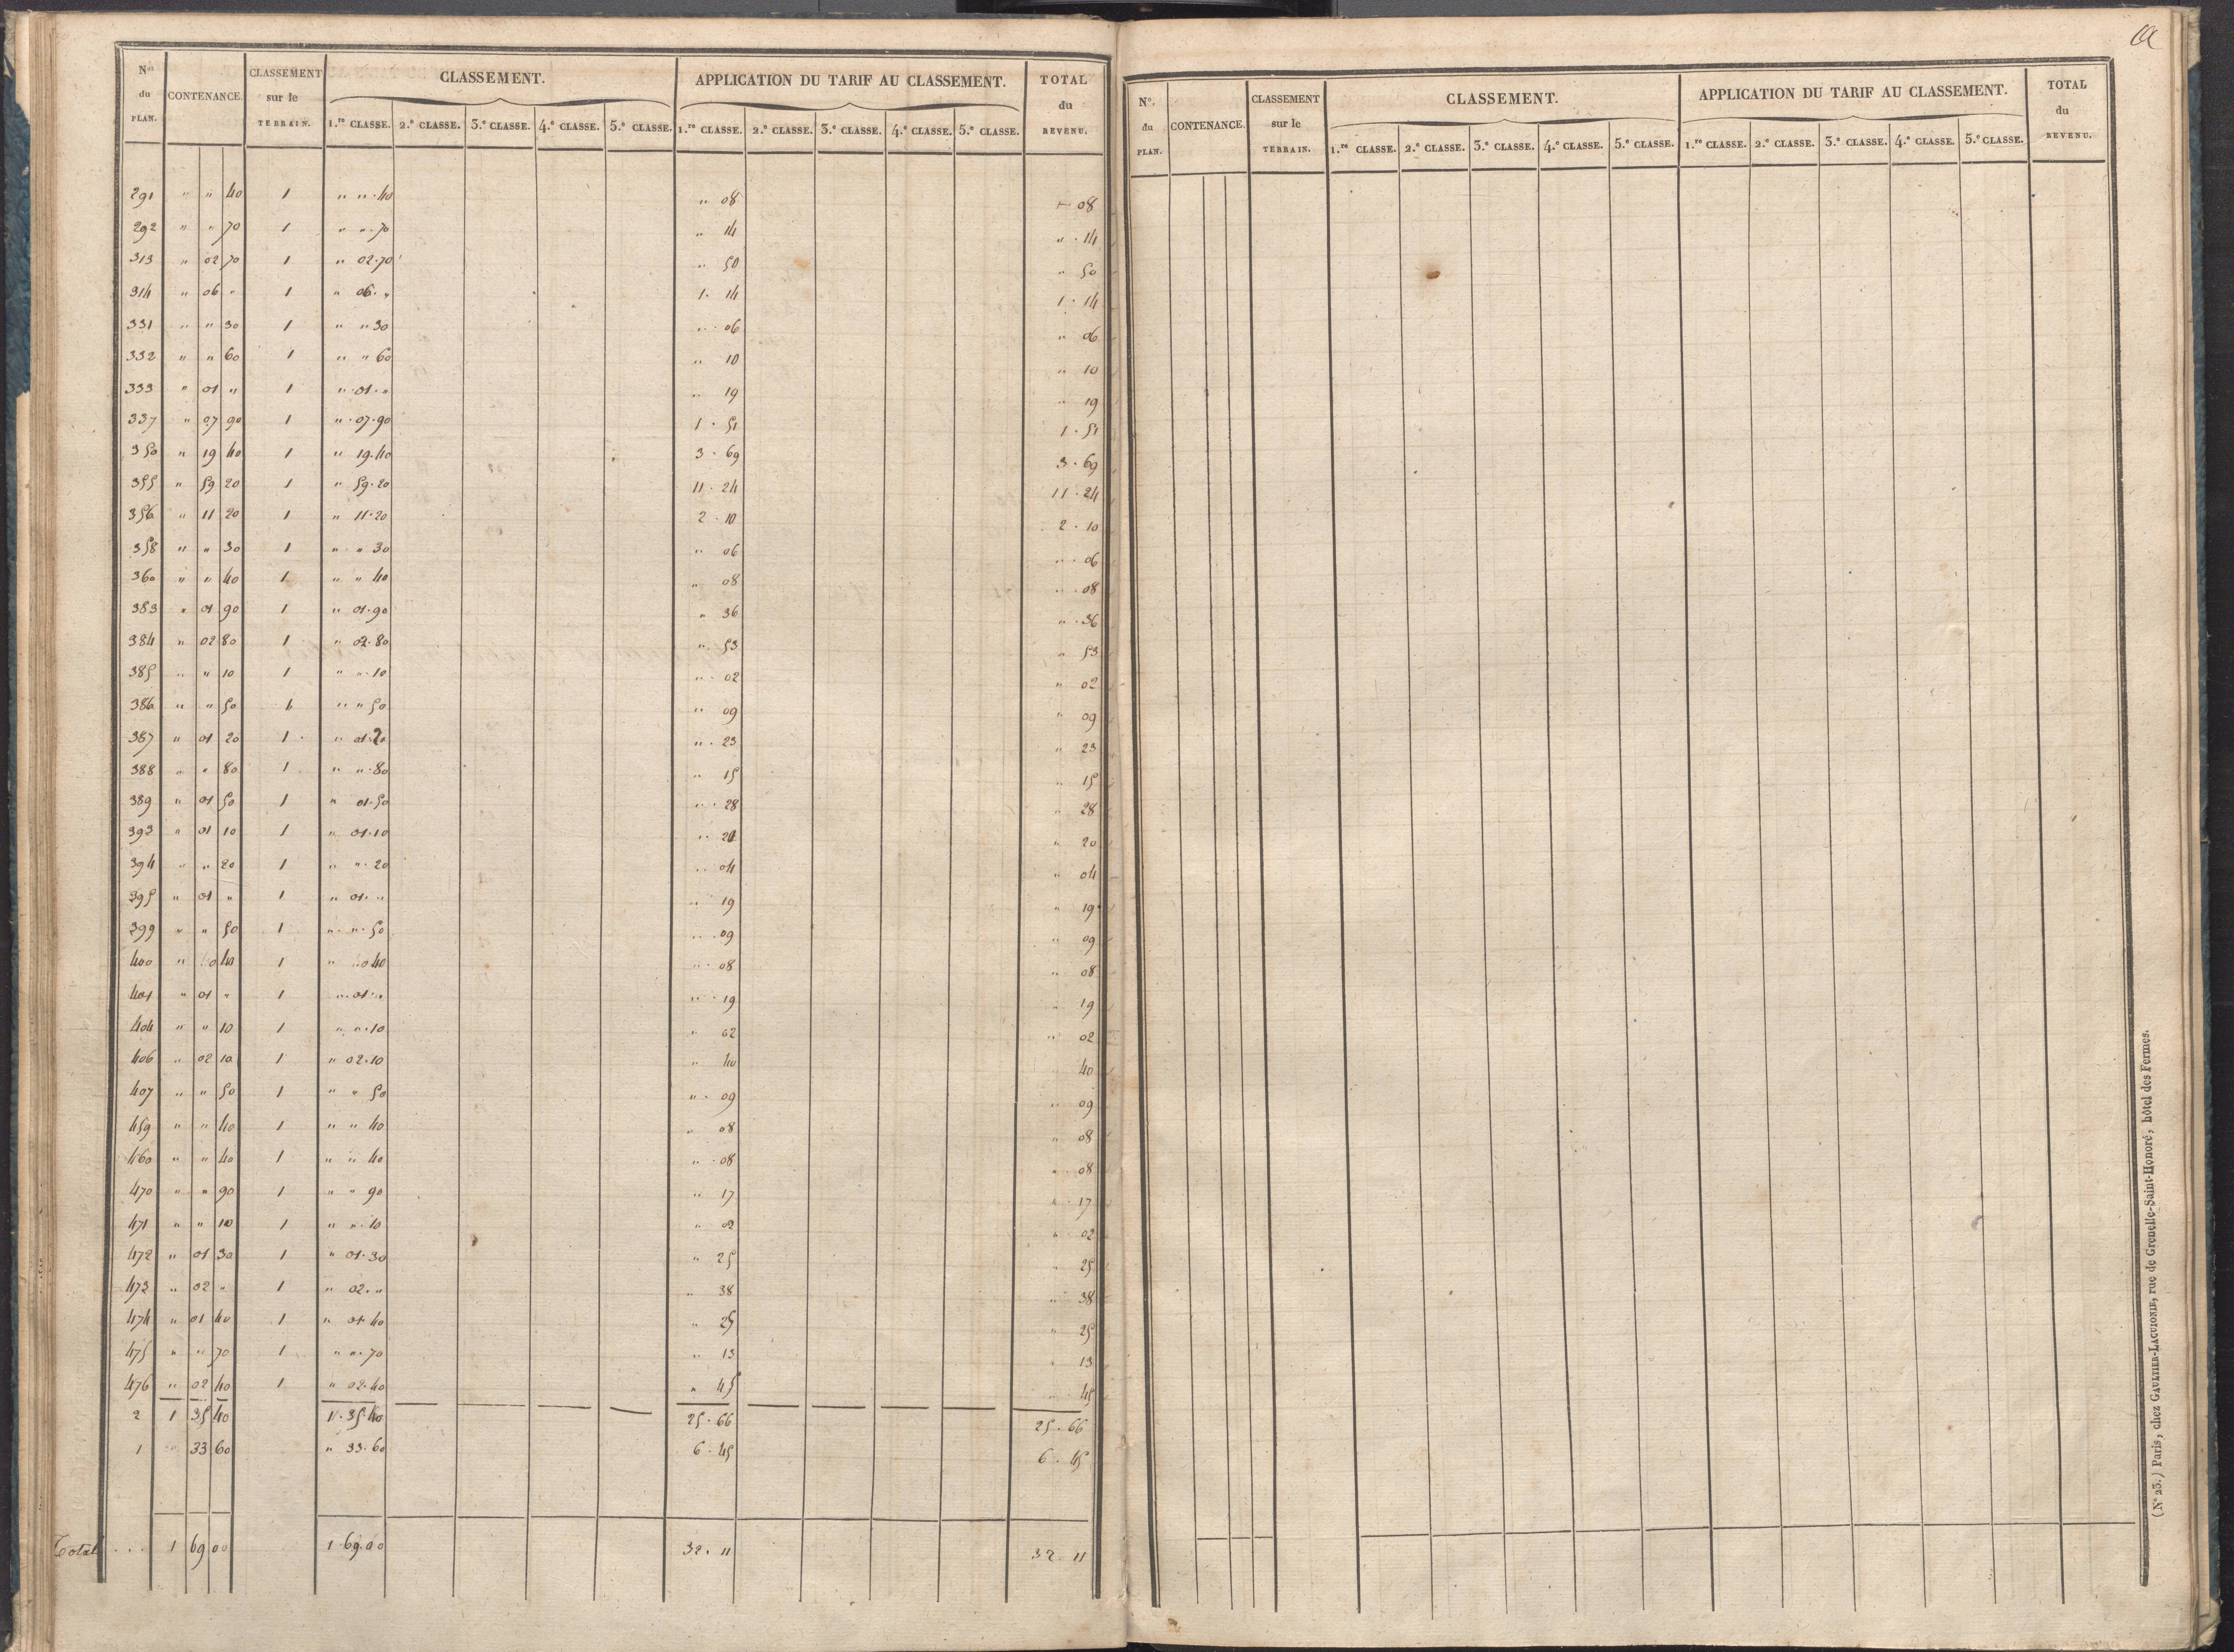 N.os du PLAN. CONTENANCE. CLASSEMENT sur le TERRAIN. CLASSEMENT. APPLICATION DU TARIF AU CLASSEMENT. TOTAL du REVENU.
1.re CLASSE. 2.e CLASSE. 3.e CLASSE. 4.e CLASSE. 5.e CLASSE. 1.re CLASSE. 2.e CLASSE. 3.e CLASSE. 4.e CLASSE. 5.e CLASSE.
291 " " 40 1 " " 40 " 08 " 08
292 " " 70 1 " " 70 " 14 " 14
313 " 02 70 1 " 02.70 " 50 " 50
314 " 06 " 1 " 06. " 1. 14 1. 14
331 " " 30 1 " " 30 " 06 " 06
332 " " 60 1 " " 60 " 10 " 10
333 " 01 " 1 " 01. " " 19 " 19
337 " 07 90 1 " 07.90 1. 51 1. 51
350 " 19 40 1 " 19.40 3. 69 3. 69
355 " 59 20 1 " 59.20 11. 24 11. 24
356 " 11 20 1 " 11.20 2. 10 2. 10
358 " " 30 1 " " 30 " 06 " 06
360 " " 40 1 " " 40 " 08 " 08
383 " 01 90 1 " 01.90 " 36 " 36
384 " 02 80 1 " 02.80 " 53 " 53
385 " " 10 1 " " 10 " 02 " 02
386 " " 50 1 " " 50 " 09 " 09
387 " 01 20 1 " 01.20 " 23 " 23
388 " " 80 1 " " 80 " 15 " 15
389 " 01 50 1 " 01.50 " 28 " 28
393 " 01 10 1 " 01.10 " 20 " 20
394 " " 20 1 " " 20 " 04 " 04
395 " 01 " 1 " 01. " " 19 " 19
399 " " 50 1 " " 50 " 09 " 09
400 " 0 40 1 " 0 40 " 08 " 08
401 " 01 " 1 " 01. " " 19 " 19
404 " " 10 1 " " 10 " 02 " 02
406 " 02 10 1 " 02.10 " 40 40
407 " " 50 1 " " 50 " 09 " 09
459 " " 40 1 " " 40 " 08 " 08
460 " " 40 1 " " 40 " 08 " 08
470 " " 90 1 " " 90 " 17 " 17
471 " " 10 1 " " 10 " 02 " 02
472 " 01 30 1 " 01.30 " 25 " 25
473 " 02 " 1 " 02. " " 38 " 38
474 " 01 40 1 " 01 40 " 25 " 25
475 " " 70 1 " " 70 " 13 " 13
476 " 02 40 1 " 02.40 " 45 " 45
2 1 35 40 1.35 40 25. 66 25. 66
1 " 33 60 " 33.60 6. 45 6. 45
Total ... 1 69 00 1.69.00 32. 11 32. 11
N.o du PLAN. CONTENANCE. CLASSEMENT sur le TERRAIN. CLASSEMENT. APPLICATION DU TARIF AU CLASSEMENT. TOTAL du REVENU.
1.re CLASSE. 2.e CLASSE. 3.e CLASSE. 4.e CLASSE. 5.e CLASSE. 1.re CLASSE. 2.e CLASSE. 3.e CLASSE. 4.e CLASSE. 5.e CLASSE.
(N° 23.) Paris, chez GAULTIER-LAGUIONIE, rue de Grenelle-Saint-Honoré, hôtel des Fermes.